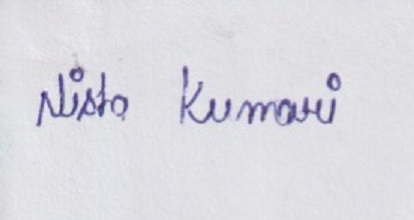 Nista Kumari